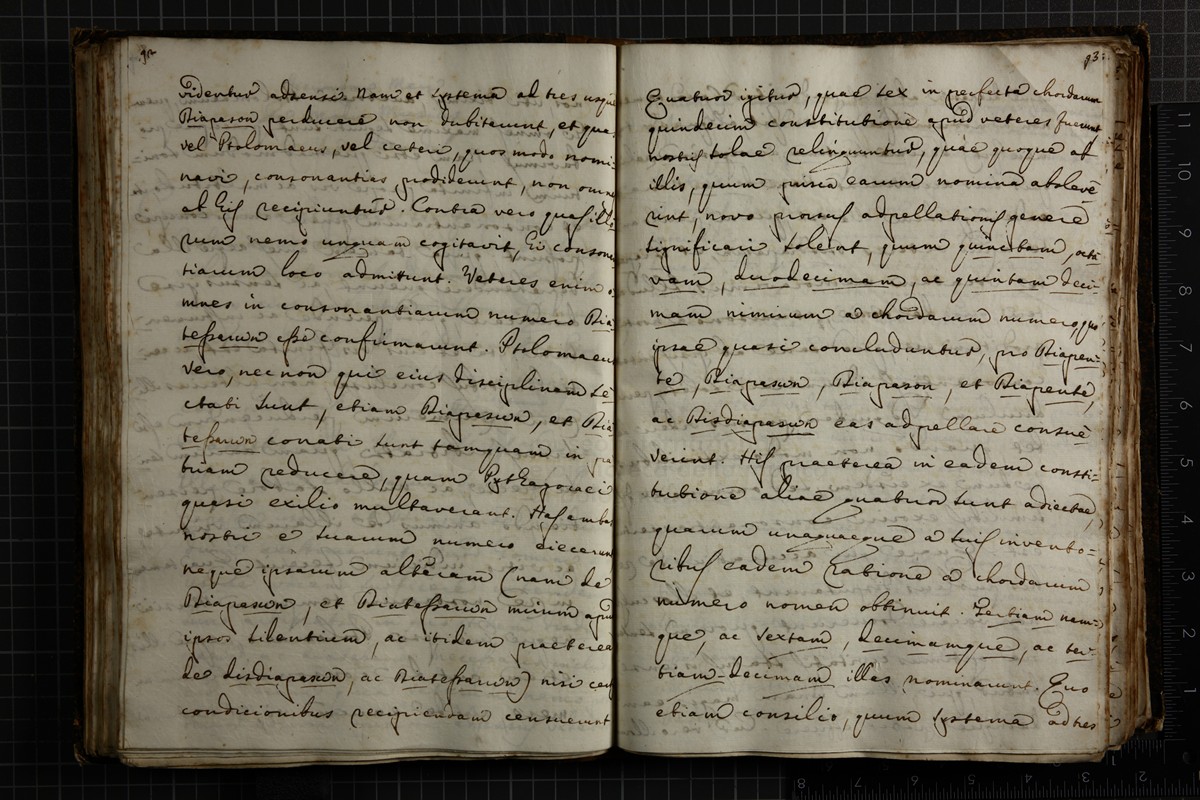 92
videntur adsensi. Nam et systema ad tres usque
Diapason perducere non dubitarunt, et quas
vel Ptolomaeus, vel ceteri, quos modo nomi-
navi, consonantias prodiderunt, non omnes
ab his recipiuntur. Contra vero quas illo-
rum nemo unquam cogitavit, hi consonan-
tiarum loco admittunt. Veteres enim o-
mnes in consonantiarum numero Dia-
tessaron esse confirmarunt. Ptolomaeus
vero, nec non qui eius disciplinam se-
ctati sunt, etiam Diapason, et Dia-
tessaron conati sunt tamquam in pa-
triam reducere, quam Pythagoraei
quasi exilio multaverant. Has ambas
nostri e suarum numero eiecerunt
neque ipsarum alteram (nam de
Diapason, et Diatessaron mirum apud
ipsos silentium, ac ibidem praeterea
de disdiapason, ac Diatessaron) nisi certis
condicionibus recipiendam censuerunt
93
Quatuor igitur, quae sex in perfecta chordarum
quindecim constitutione apud veteres fuerunt
nostris solae relinquuntur, quae quoque ab
illis, quum prisca earum nomina aboleve
rint, novo prorsus adpellationis genere
significari solent, quum quinctam, octa
vam, duodecimam, ac quintam deci-
mam nimirum a chordarum numero, quo
ipsae quasi concluduntur, pro Diapen-
te, Diapason, Diapason, et Diapente,
ac Disdiapason eas adpellare consue
verint. His praeterea in eadem consti-
tutione aliae quatuor sunt adiectae,
quarum unaquaeque a suis invento-
ribus eadem ratione a chordarum
numero nomen obtinuit. Tertiam nam-
que, ac sextam, decimamque, ac ter-
tiam-decimam illas nominarunt. Quo
etiam consilio, quum systema ad tres